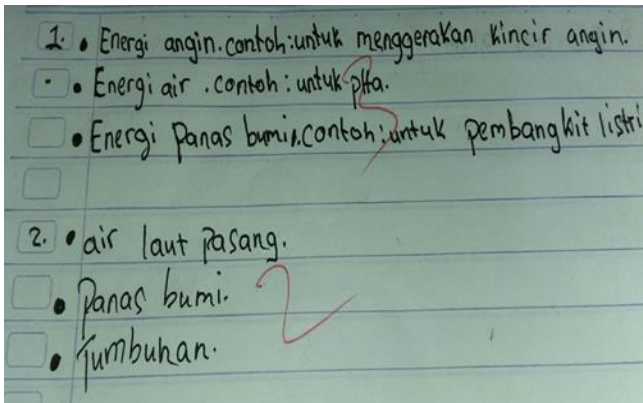 1. • Energi angin.contoh:untuk menggerakan kincir angin.
• Energi air .contoh: untuk plta.
• Energi panas bumi.contoh:untuk pembangkit listri
2. • air laut pasang.
• Panas bumi.
• Tumbuhan.